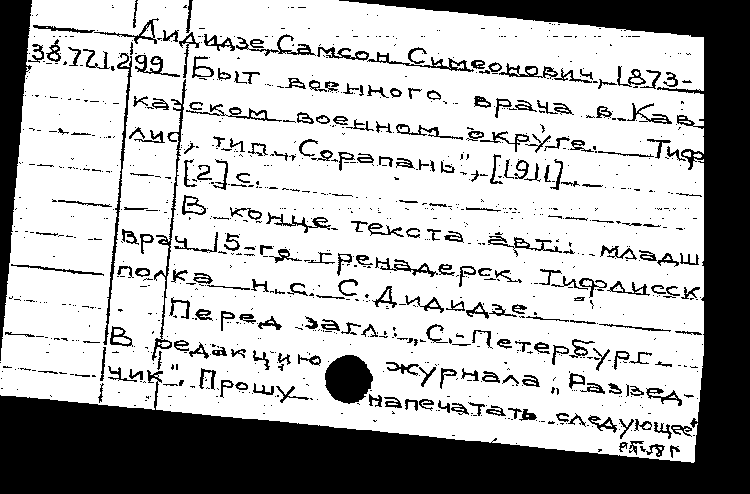 Дидидзе, Самсон Симеонович, 1873-
38.771.299 Быт военного врача в Кав-
казском военном округе. Тиф
лис, тип. „Сорапань", [1911].
[2] с.
В конце текста авт.: младш.
врач 15-го гренадерск. Тифлисск.
полка н.с. С. Дидидзе.
Перед загл.: „С.-Петербург.
В редакцию журнала „Развед-
чик". Прошу напечатать следующее"